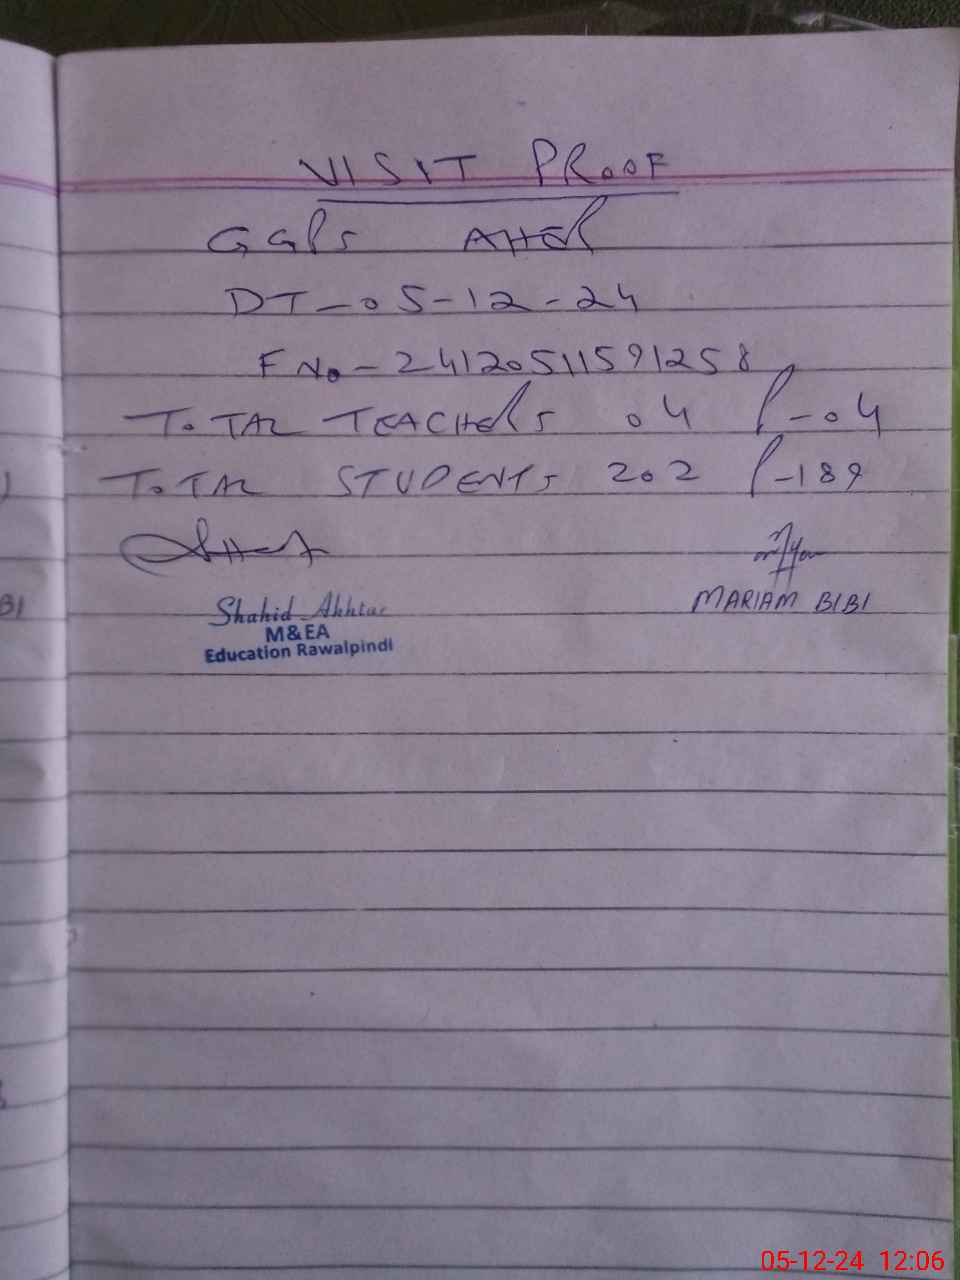 VISIT PROOF
GGPS
DT-05-12-24
F No-24120511591258
TOTAL TEACHERS 04 P-04
TOTAL STUDENTS 202 P-189
Shahid Akhtar
M&EA
Education Rawalpindi
MARIAM BIBI
BI
05-12-24 12:06